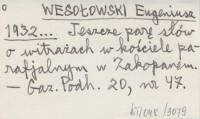 WESOŁOWSKI Eugeniusz
1932... Jeszcze parę słów
o witrażach w kościele pa-
rafjalnym w Zakopanem.
— Gaz. Podh. 20, nr 47.
/3079